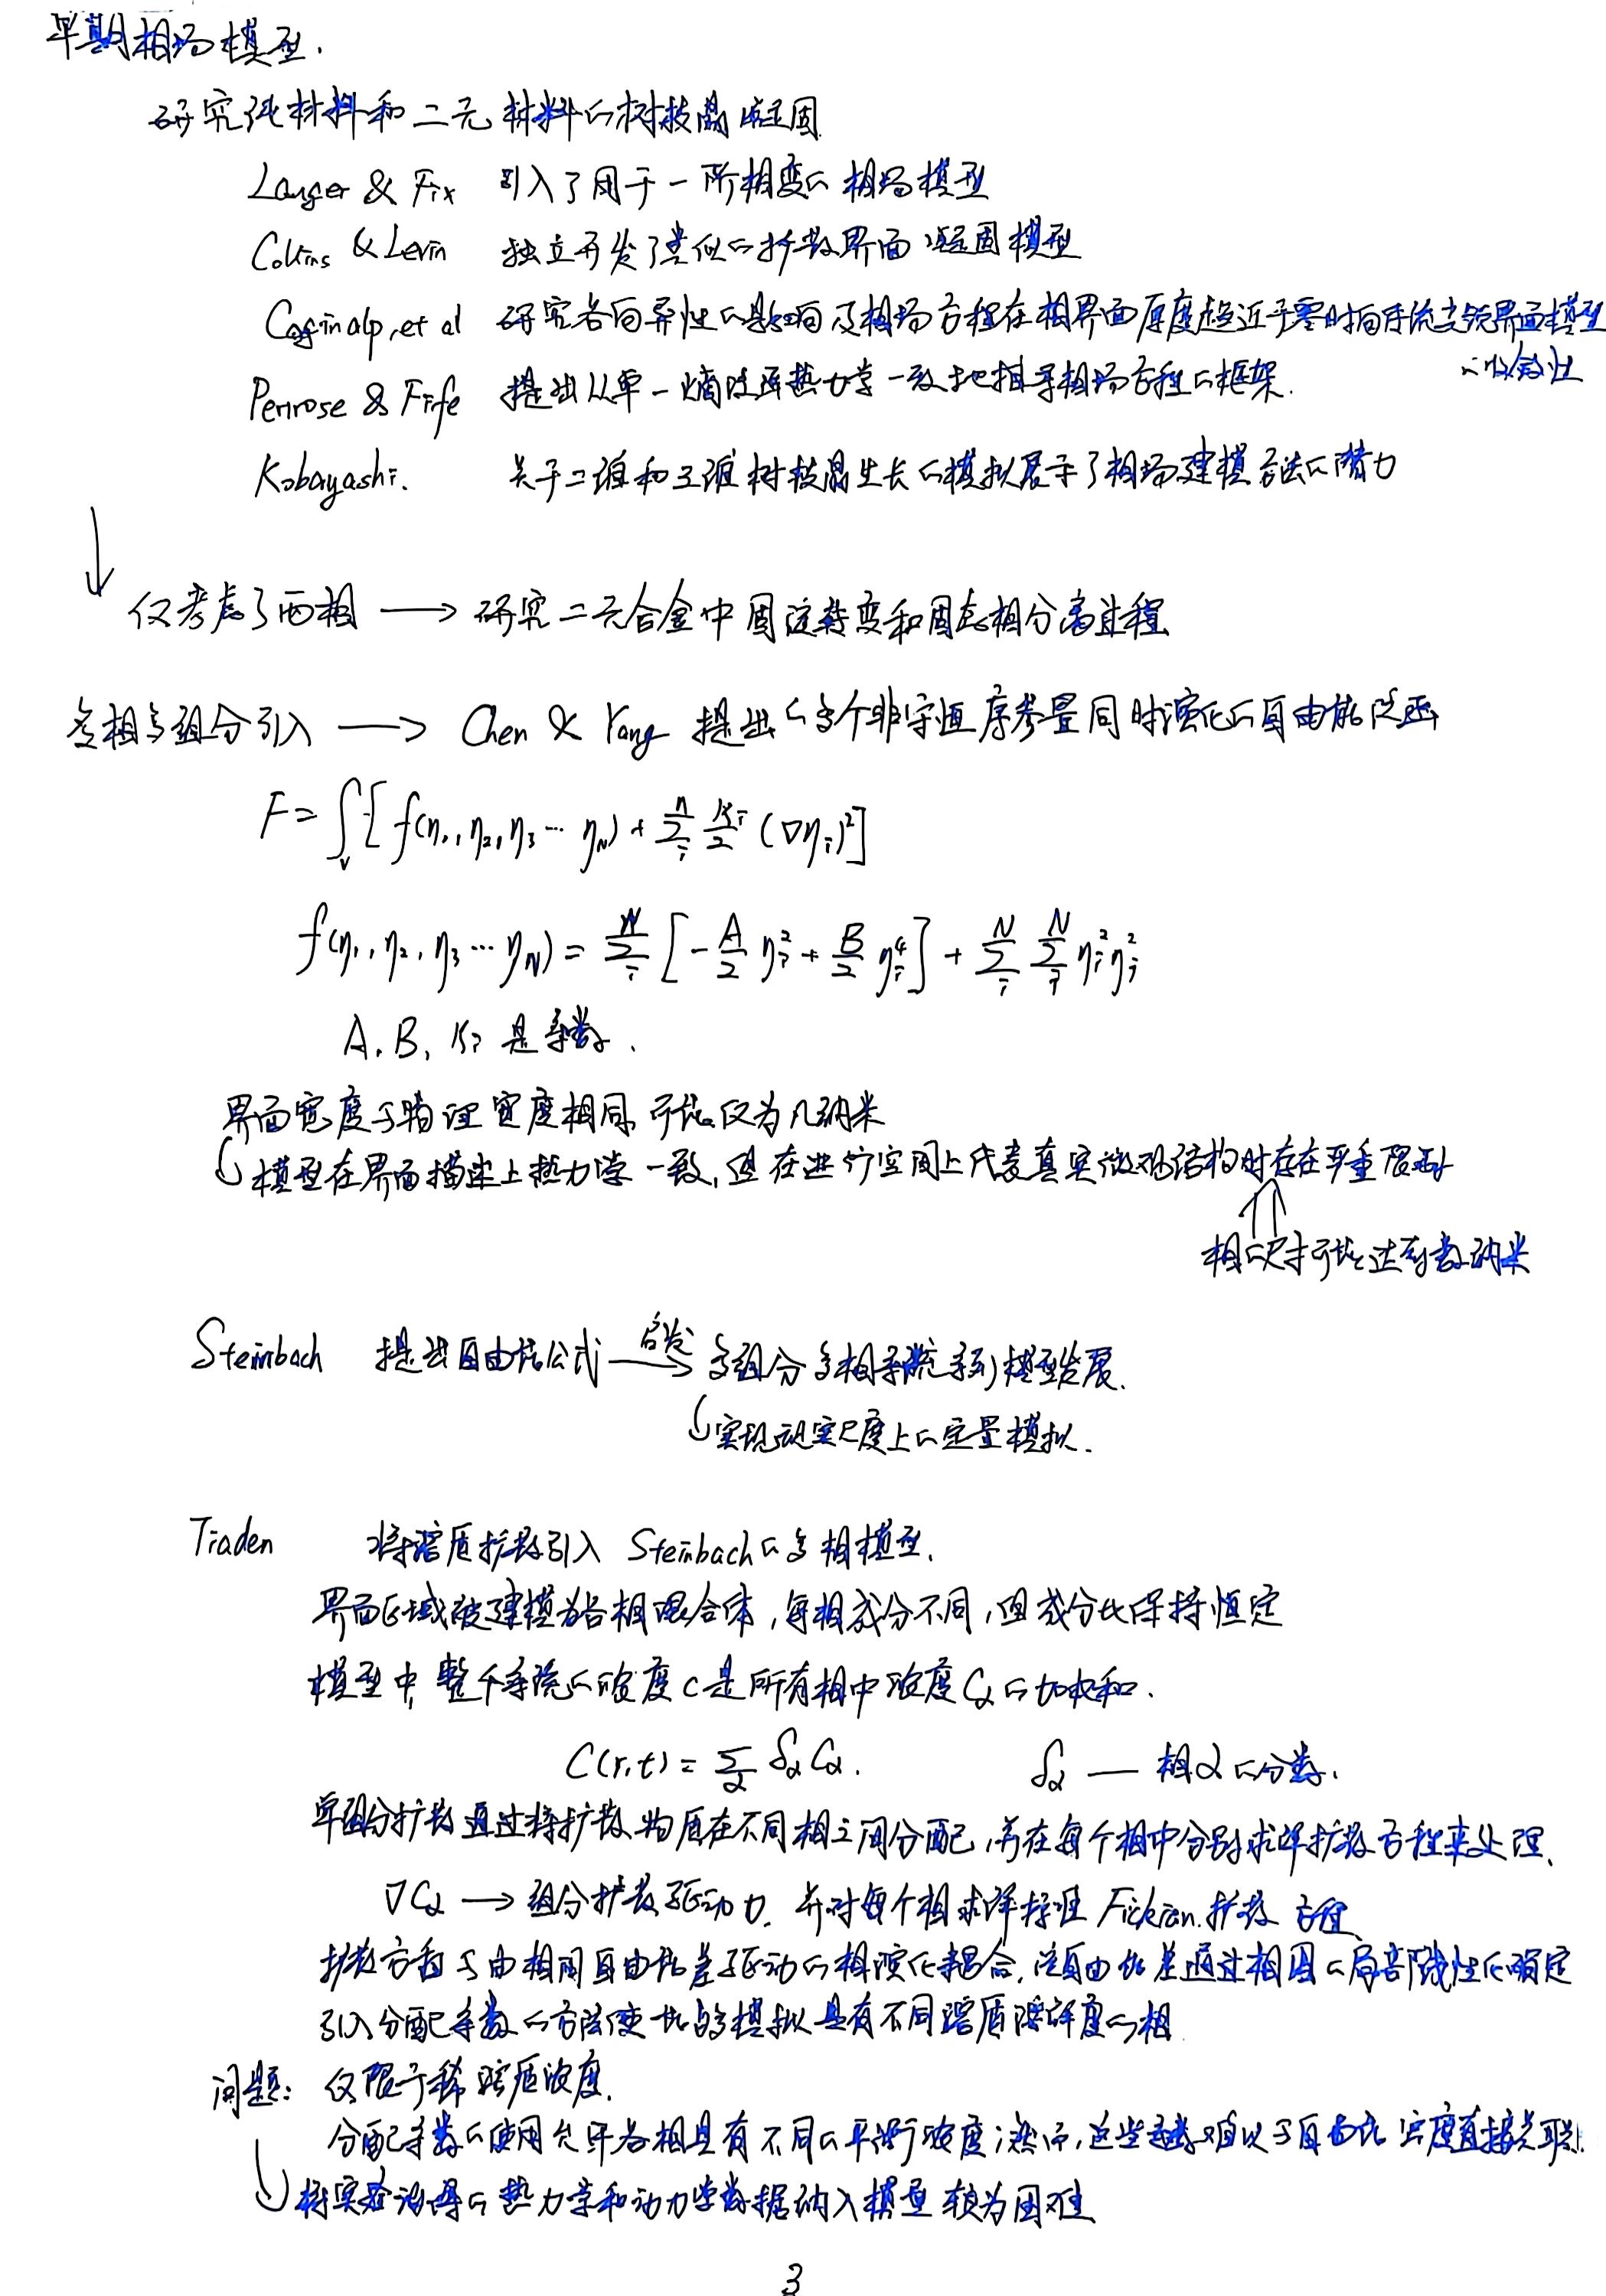 早期相场模型.
研究纯材料和二元材料的树枝晶凝固
Langer & Fix 引入了用于一阶相变的相场模型
Collins & Levin 独立开发了类似的扩散界面凝固模型
Caginalp, et al 研究各向异性的影响及相场方程在相界面厚度趋近于零时向传统尖锐界面模型
的收敛性
Penrose & Fife 提出从单一熵泛函热力学一致地推导相场方程的框架.
Kobayashi. 关于二维和三维树枝晶生长的模拟展示了相场建模方法的潜力
↓
仅考虑了两相 → 研究二元合金中固液转变和固态相分离过程
多相多组分引入 → Chen & Yang 提出的多个非守恒序参量同时演化的自由能泛函
F = ∫_V [ f(η₁, η₂, η₃ ⋯ η_N) + Σ_i^n K_i/2 (∇η_i)² ]
f(η₁, η₂, η₃ ⋯ η_N) = Σ_i^N [ -A/2 η_i² + B/2 η_i⁴ ] + Σ_i^N Σ_j^N η_i² η_j²
A, B, K_i 是系数.
界面宽度与物理宽度相同 可能仅为几纳米
模型在界面描述上热力学一致, 但在进行空间上代表真实微观结构时存在严重限制
⇑
相的尺寸可能达到数纳米
Steinbach 提出自由能公式 启发→ 多组分多相系统系列模型发展.
实现现实尺度上的定量模拟.
Tiaden 将溶质扩散引入 Steinbach的多相模型.
界面区域被建模为各相混合体, 每相成分不同, 但成分比保持恒定
模型中, 整个系统的浓度c是所有相中浓度C_α的加权和.
C(r,t) = Σ_α δ_α C_α. δ_α — 相α的分数.
单组分扩散通过将扩散物质在不同相之间分配, 并在每个相中分别求解扩散方程来处理.
∇C_α → 组分扩散驱动力. 并对每个相求解标准 Fickian. 扩散方程
扩散方程与由相间自由能差驱动的相演化耦合, 该自由能差通过相图的局部线性化确定
引入分配系数的方法使其能够模拟具有不同溶质溶解度的相
问题: 仅限于稀溶质浓度.
分配系数的使用允许各相具有不同的平衡浓度; 然而, 这些系数难以与自由能密度直接关联.
将实验测得的热力学和动力学数据纳入模型较为困难
3